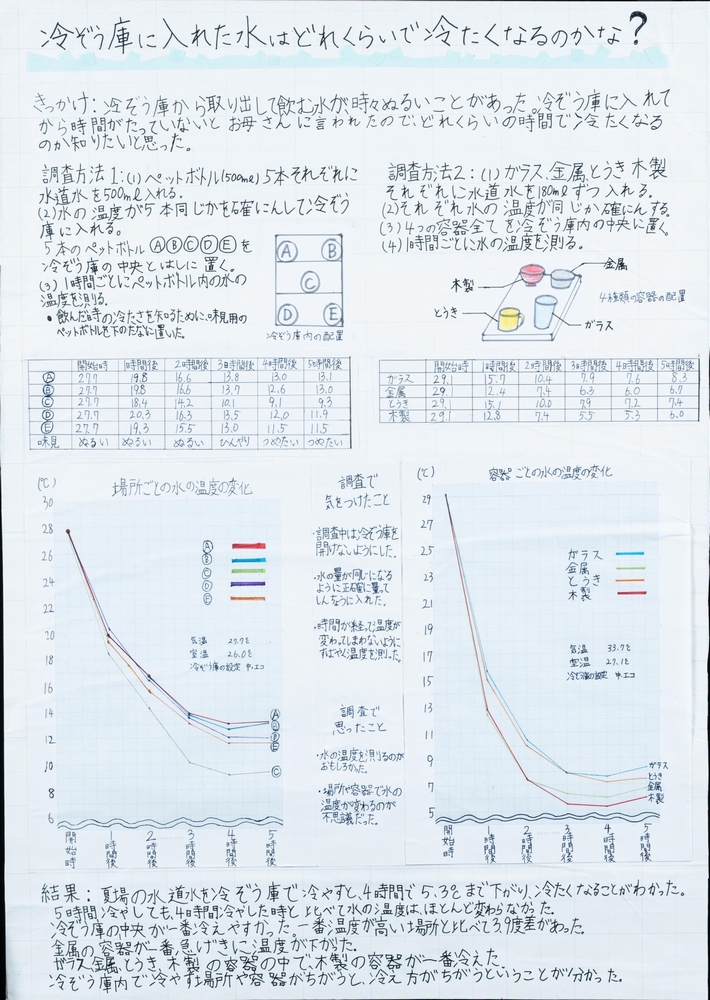 冷ぞう庫に入れた水はどれくらいで冷たくなるのかな?
きっかけ:冷ぞう庫から取り出して飲む水が、時々ぬるいことがあった。冷ぞう庫に入れて
から時間がたっていないとお母さんに言われたので、どれくらいの時間で冷たくなる
のか知りたいと思った。
調査方法1:(1)ペットボトル(500ml)5本それぞれに
水道水を500ml入れる。
(2)水の温度が5本同じかを確にんして冷ぞう
庫に入れる。
5本のペットボトルⒶⒷⒸⒹⒺを
冷ぞう庫の中央とはしに置く。
(3)1時間ごとにペットボトル内の水の
温度を測る。
•飲んだ時の冷たさを知るために、味見用の
ペットボトルを下のたなに置いた。
Ⓐ Ⓑ
Ⓒ
Ⓓ Ⓔ
冷ぞう庫内の配置
調査方法2:(1)ガラス、金属、とうき、木製
それぞれに水道水を180mlずつ入れる。
(2)それぞれ水の温度が同じか確にんする。
(3)4つの容器全てを冷ぞう庫内の中央に置く。
(4)1時間ごとに水の温度を測る。
木製
金属
とうき
ガラス
4種類の容器の配置
開始時 1時間後 2時間後 3時間後 4時間後 5時間後
Ⓐ 27.7 19.8 16.6 13.8 13.0 13.1
Ⓑ 27.7 19.8 16.6 13.7 12.6 13.0
Ⓒ 27.7 18.4 14.2 10.1 9.1 9.3
Ⓓ 27.7 20.3 16.3 13.5 12.0 11.9
Ⓔ 27.7 19.3 15.5 13.0 11.5 11.5
味見 ぬるい ぬるい ぬるい ひんやり つめたい つめたい
開始時 1時間後 2時間後 3時間後 4時間後 5時間後
ガラス 29.1 15.7 10.4 7.9 7.6 8.3
金属 29.1 2.4 7.4 6.3 6.0 6.7
とうき 29.1 15.1 10.0 7.9 7.2 7.4
木製 29.1 12.8 7.4 5.5 5.3 6.0
(℃)
場所ごとの水の温度の変化
30
28
26
24
22
20
18
16
14
12
10
8
6
Ⓐ
Ⓑ
Ⓒ
Ⓓ
Ⓔ
気温 27.7℃
室温 26.0℃
冷ぞう庫の設定 中・エコ
Ⓐ
Ⓑ
Ⓓ
Ⓔ
Ⓒ
開始時 1時間後 2時間後 3時間後 4時間後 5時間後
調査で
気をつけたこと
・調査中は冷ぞう庫を
開けないようにした。
・水の量が同じになる
ように正確に量って
しんちょうに入れた。
・時間が経って温度が
変わってしまわないように
すばやく温度を測った。
調査で
思ったこと
・水の温度を測るのが
おもしろかった。
・場所や容器で水の
温度が変わるのが
不思議だった。
(℃)
容器ごとの水の温度の変化
29
27
25
23
21
19
17
15
13
11
9
7
5
ガラス
金属
とうき
木製
気温 33.7℃
室温 27.1℃
冷ぞう庫の設定 中・エコ
ガラス
とうき
金属
木製
開始時 1時間後 2時間後 3時間後 4時間後 5時間後
結果:夏場の水道水を冷ぞう庫で冷やすと、4時間で5.3℃まで下がり、冷たくなることがわかった。
5時間冷やしても、4時間冷やした時と比べて水の温度は、ほとんど変わらなかった。
冷ぞう庫の中央が一番冷えやすかった。一番温度が高い場所と比べて3.9度差があった。
金属の容器が一番急げきに温度が下がった。
ガラス、金属、とうき、木製の容器の中で、木製の容器が一番冷えた。
冷ぞう庫内で冷やす場所や容器がちがうと、冷え方がちがうということが分かった。